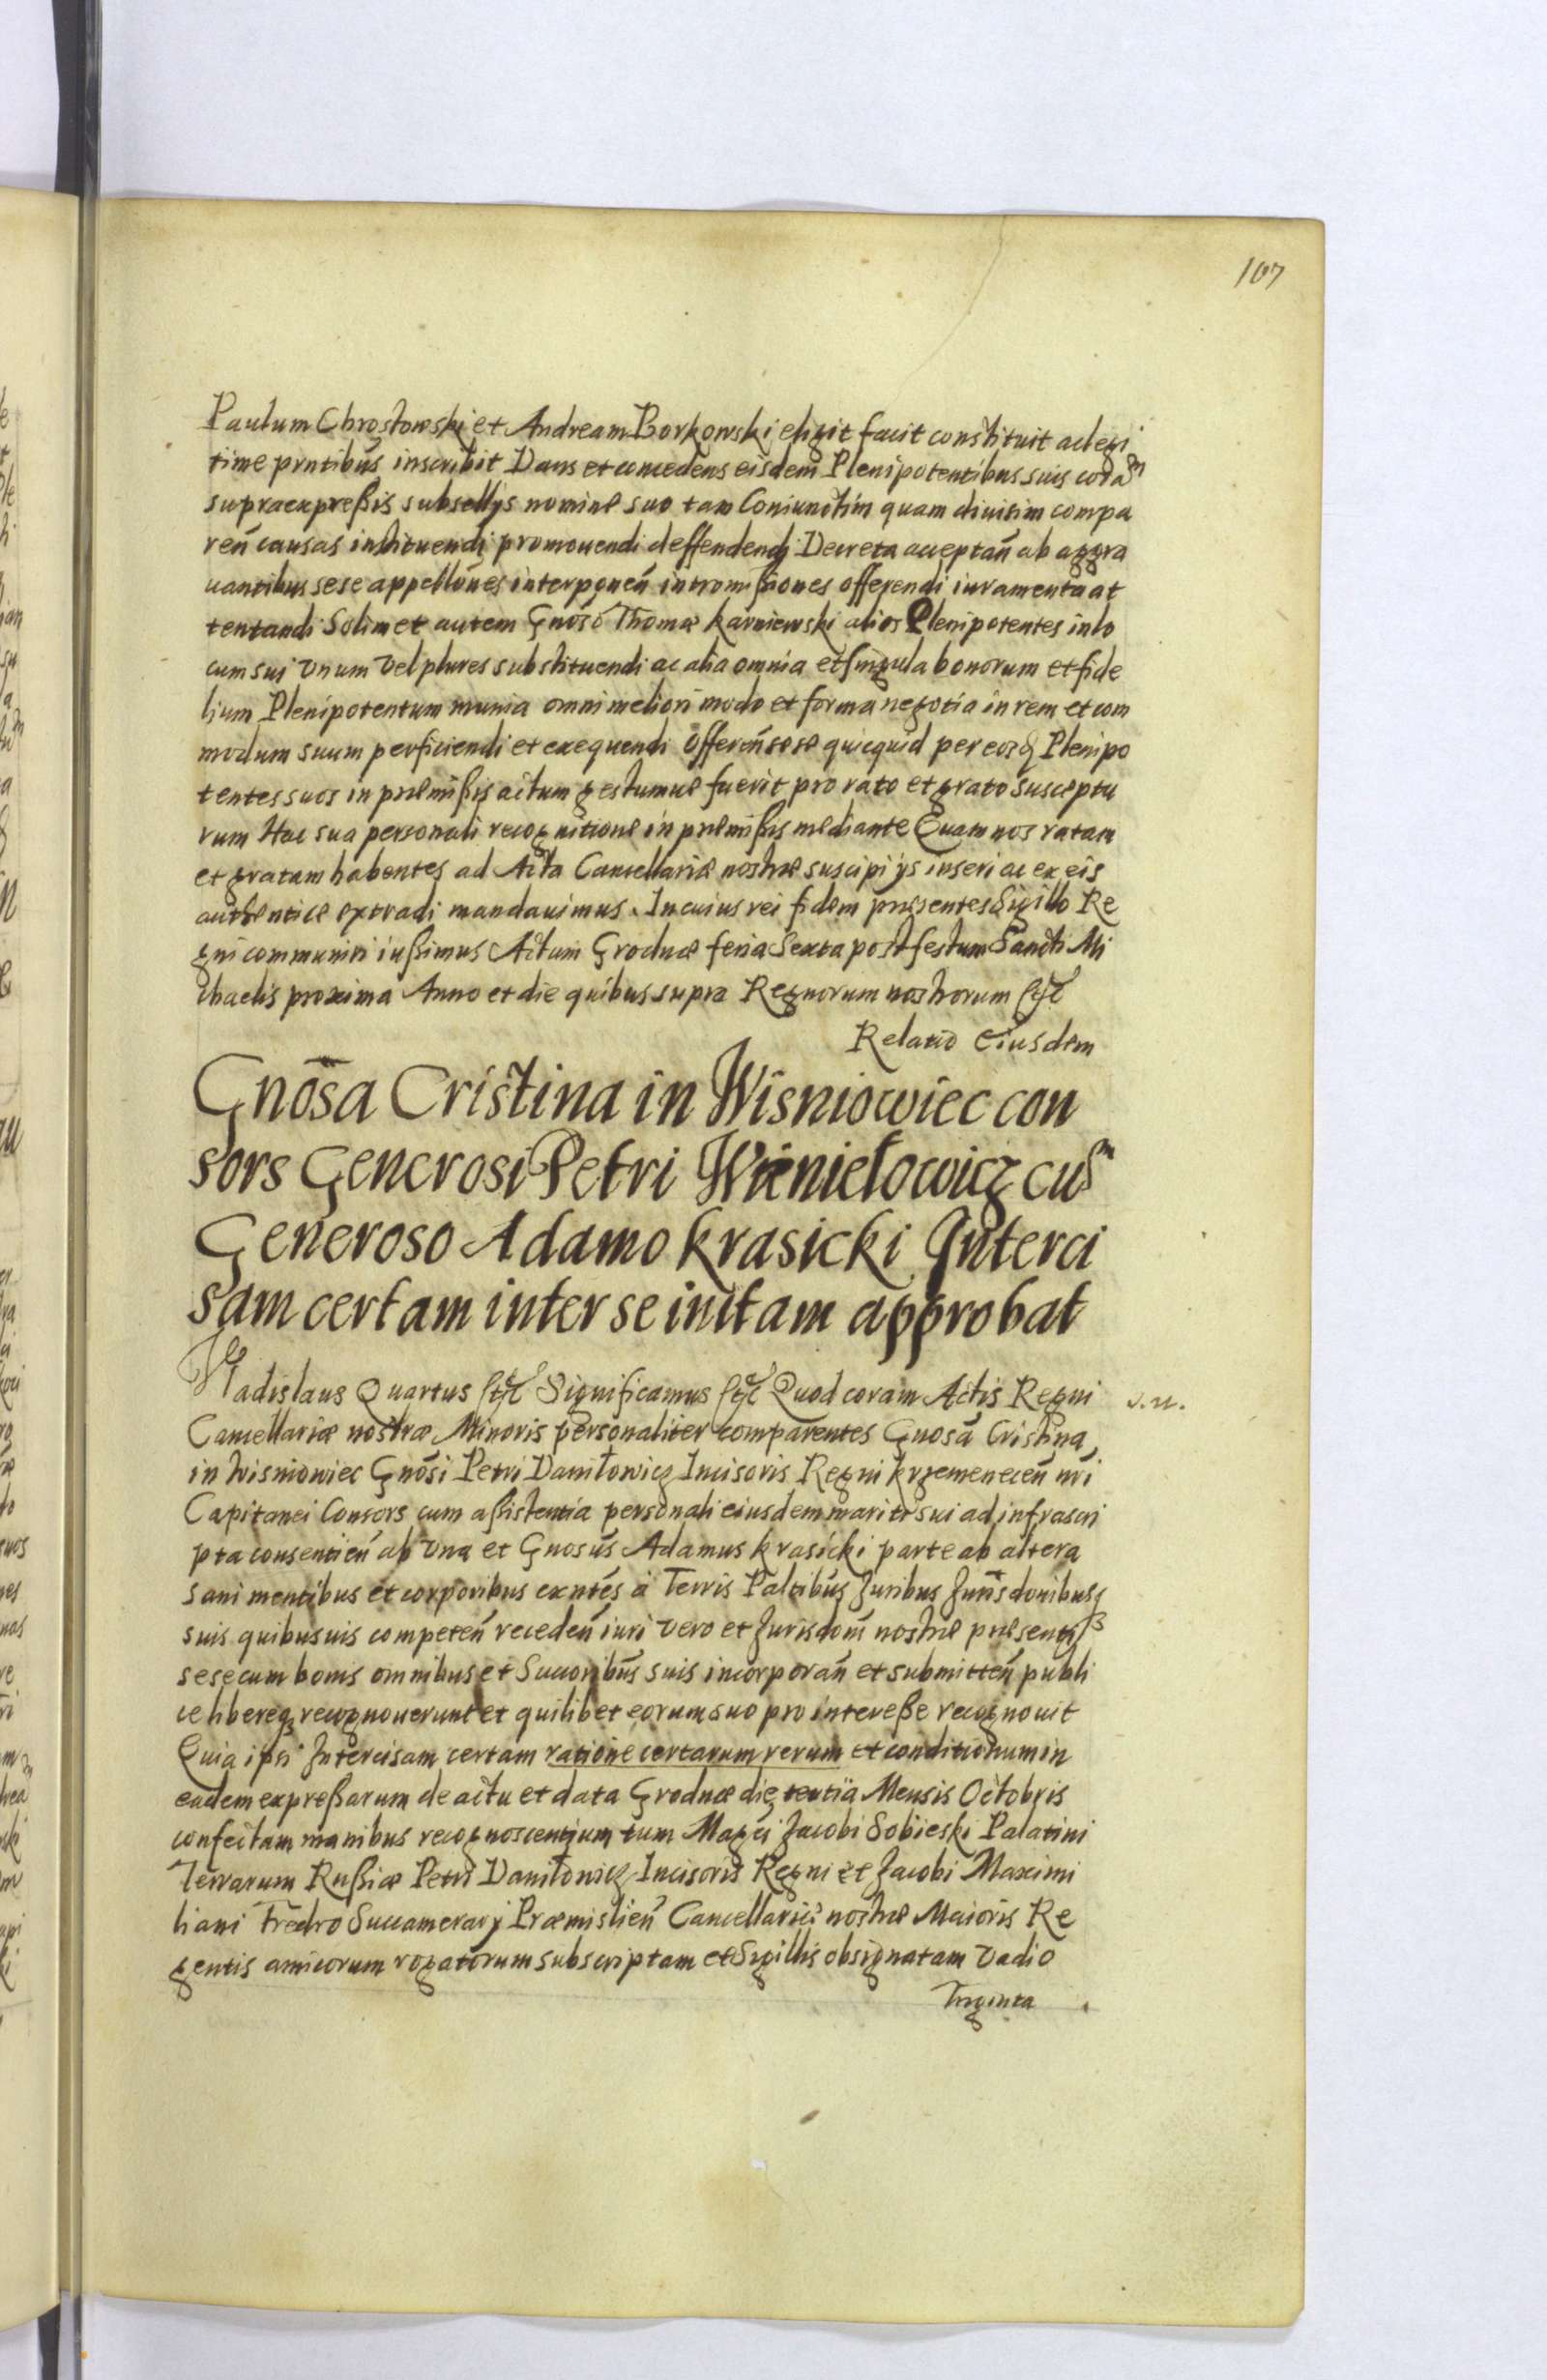 107
Paulum Chrostowski et Andream Borkowski eligit facit constituit ac legi
time pr̃ntibus inscribit Dans et concedens eisdem Plenipotentibus suis corã
supraexpreßis subsellijs nomine suo tam Coniunctim quam diuisim compa
ren̄ causas instituendi promouendi deffendendi Decreta acceptan̄ ab aggra
uantibus sese appellõnes interponen̄ intromißiones offerendi iuramenta at
tentandi Solimet autem Gnoso Thomæ Karniewski alios Plenipotentes in lo
cum sui Vnum vel plures substituendi ac alia omnia et singula bonorum et fide
lium Plenipotentum munia omni meliori modo et forma negotia in rem et com
modum suum perficiendi et exequendi Offeren̄ sese quicquid per eosd Plenipo
tentes suos in præmißis actum gestumue fuerit pro rato et grato susceptu
rum Hac sua personali recognitione in præmißis mediante Quam nos ratam
et gratam habentes ad Acta Cancellariæ nostræ suscipi ijs inseri ac ex eis
authentice extradi mandauimus. In cuius rei fidem præsentes Sigillo Re
gni communiri iußimus Actum Grodnæ feria Sexta post festum Sancti Mi
chaelis proxima Anno et die quibus supra Regnorum nostrorum etc
Relatio Eiusdem
Gnõsa Cristina in Wisniowiec con
sors Generosi Petri cum
Generoso Adamo Krasicki Interci
sam certam inter se initam approbat
Vladislaus Quartus etc Significamus etc Quod coram Actis Regni
Cancellariæ nostræ Minoris personaliter comparentes Gnosã Cristina
in Wisniowiec Gnõsi Petri Daniłowicz Incisoris Regni Krzemenecen̄ nr̃i
Capitanei Consors cum aßistentia personali eiusdem mariti sui ad infrascri
pta consentien̄ ab Vna et Gnosus Adamus Krasicki parte ab altera
sani mentibus et corporibus exñtes à Terris Paltibus Juribus Jurisdonibusq
suis quibusuis competen̄ receden̄ iuri vero et Jurisdoni nostræ præsentis
sese cum bonis omnibus et Succoribus suis incorporan̄ et submitten̄ publi
ce libereq recognouerunt et quilibet eorum suo pro intereße recognouit
Quia ipsi Intercisam certam ratione certarum rerum et conditionum in
eadem expreßarum de actu et data Grodnæ die tertia Mensis Octobris
confectam manibus recognoscentium tum Magci Jacobi Sobieski Palatini
Terrarum Rußiæ Petri Daniłowicz Incisoris Regni et Jacobi Maximi
liani Fredro Succamerarij Præmislien̄ Cancellariæ nostræ Maioris Re
gentis amicorum rogatorum subscriptam et Sigillis obsignatam Vadio
Triginta